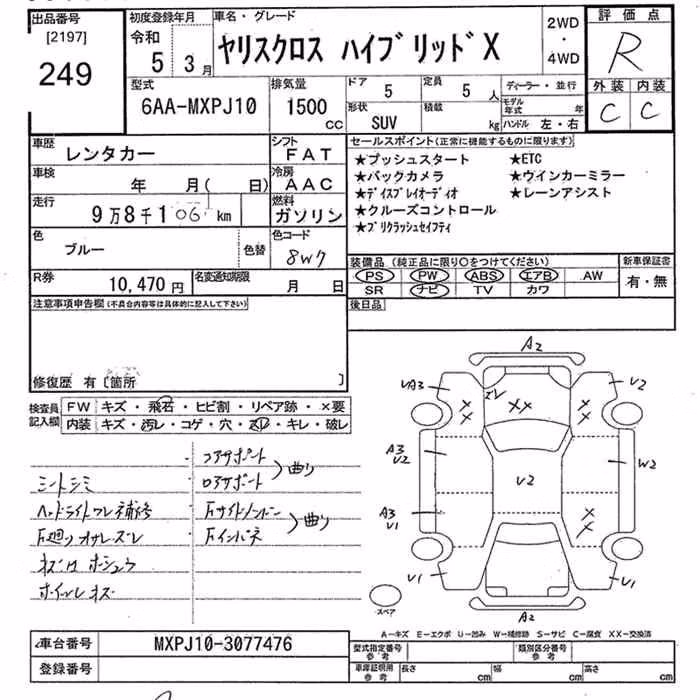 出品番号
[2197]
249
初度登録年月
令和
5 3月
車名・グレード
ヤリスクロス ハイブリッドX
2WD
・
4WD
評価点
R
外装 内装
C C
型式
6AA-MXPJ10
排気量
1500
CC
ドア
5
定員
5 人
形状
SUV
積載
kg
ディーラー・並行
モデル年式 年
ハンドル 左・右
車歴
レンタカー
シフト
FAT
車検
年 月( 日)
冷房
AAC
走行
9万8千106km
燃料
ガソリン
色
ブルー
色替
色コード
8W7
R券
10,470円
名変通知期限
月 日
セールスポイント(正常に機能するものに限ります)
★プッシュスタート ★ETC
★バックカメラ ★ウインカーミラー
★ディスプレイオーディオ ★レーンアシスト
★クルーズコントロール
★プリクラッシュセイフティ
装備品 (純正品に限り○をつけてください)
新車保証書
有・無
PS PW ABS エアB AW
SR ナビ TV カワ
後日品
注意事項申告欄(不具合内容等は具体的に記入して下さい)
修復歴 有〔箇所 〕
検査員記入欄
FW キズ・飛石・ヒビ割・リペア跡・×要
内装 キズ・汚レ・コゲ・穴・スレ・キレ・破レ
コアサポート
ロアサポート
曲り
シートシミ
ヘッドライトワレ補修
Fサイドメンバー
Fインパネ
曲り
ホイールキズ
A2
VA3
V2
XX
A3
V2
V2
W2
A3
V1
XX
V1
V1
A2
スペア
A-キズ E-エクボ U-凹み W-補修跡 S-サビ C-腐食 XX-交換済
車台番号
MXPJ10-3077476
登録番号
型式指定番号
参考
類別区分番号
参考
車庫証明用
参考
長さ cm
幅 cm
高さ cm